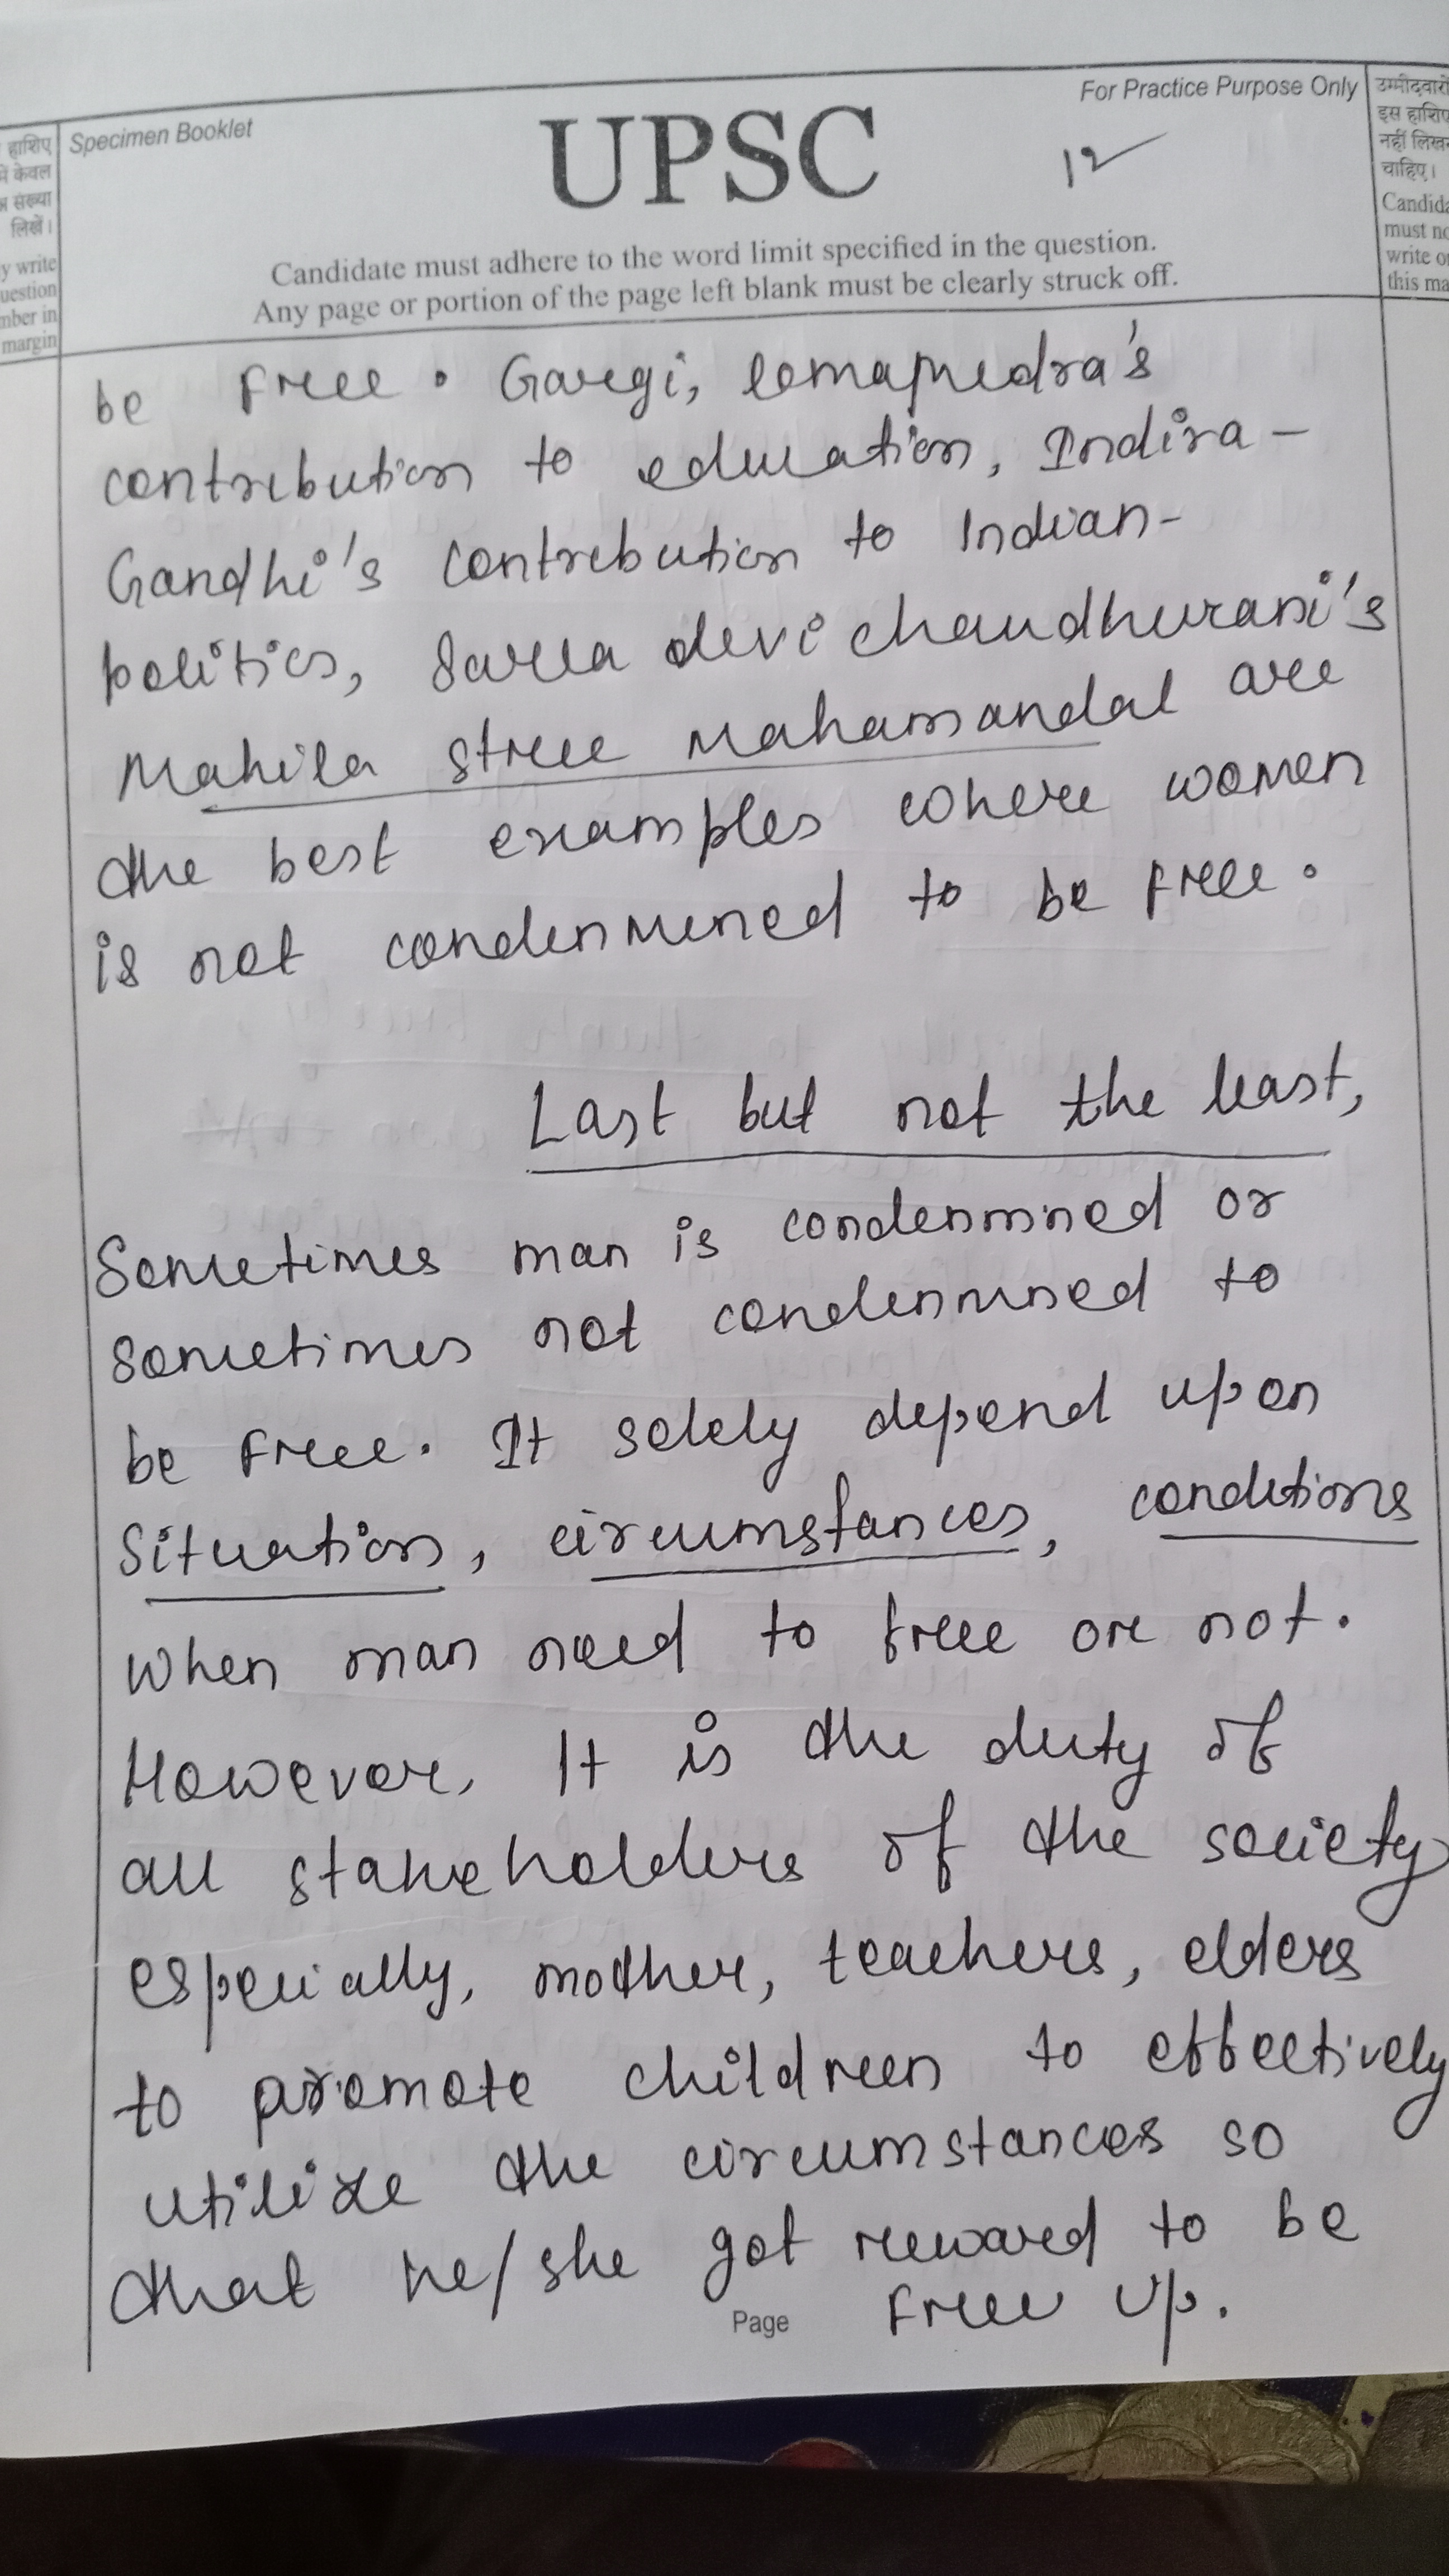 हाशिए
में केवल
संख्या
लिखें।
y write
uestion
mber in
margin
Specimen Booklet
UPSC
For Practice Purpose Only
12
Candidate must adhere to the word limit specified in the question.
Any page or portion of the page left blank must be clearly struck off.
उम्मीदवारों
इस हाशिए
नहीं लिखन
चाहिए।
Candida
must no
write o
this ma
be free. Gargi, lomapudra's
contribution to education, Indira-
Gandhi's contribution to Indian-
politics, Sarla devi chaudhurani's
Mahila stree Mahamandal are
the best examples where women
is not condenmened to be free.
Last but not the least,
Sometimes man is condenmned or
sometimes not condenmned to
be free. It solely depend upon
situation, circumstances, conditions
when man need to free or not.
However, It is the duty of
all stakeholders of the society
especially, mother, teachers, elders
to promote children to effectively
utilize the circumstances so
that he/she got reward to be
free up.
Page